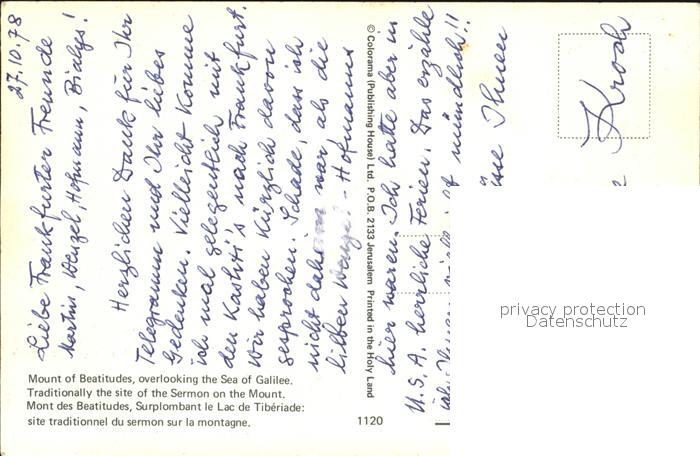 27.10.78
Liebe Frankfurter Freunde
Martins, Wenzel, Hofmann, Bialys!
Herzlichen Dank für Ihr
Telegramm und Ihr liebes
Gedenken. Vielleicht komme
ich mal gelegentlich mit
den Kashti's nach Frankfurt.
Wir haben kürzlich davon
gesprochen. Schade, dass ich
nicht daheim war, als die
lieben Wenzel-Hofmanns
hier waren. Ich hatte aber in
U.S.A. herrliche Ferien. Das erzähle
ich Ihnen mündlich!!
Ihnen
Kroch
© Colorama (Publishing House) Ltd. P.O.B. 2133 Jerusalem Printed in the Holy Land
Mount of Beatitudes, overlooking the Sea of Galilee.
Traditionally the site of the Sermon on the Mount.
Mont des Beatitudes, Surplombant le Lac de Tibériade:
site traditionnel du sermon sur la montagne.
1120
privacy protection
Datenschutz